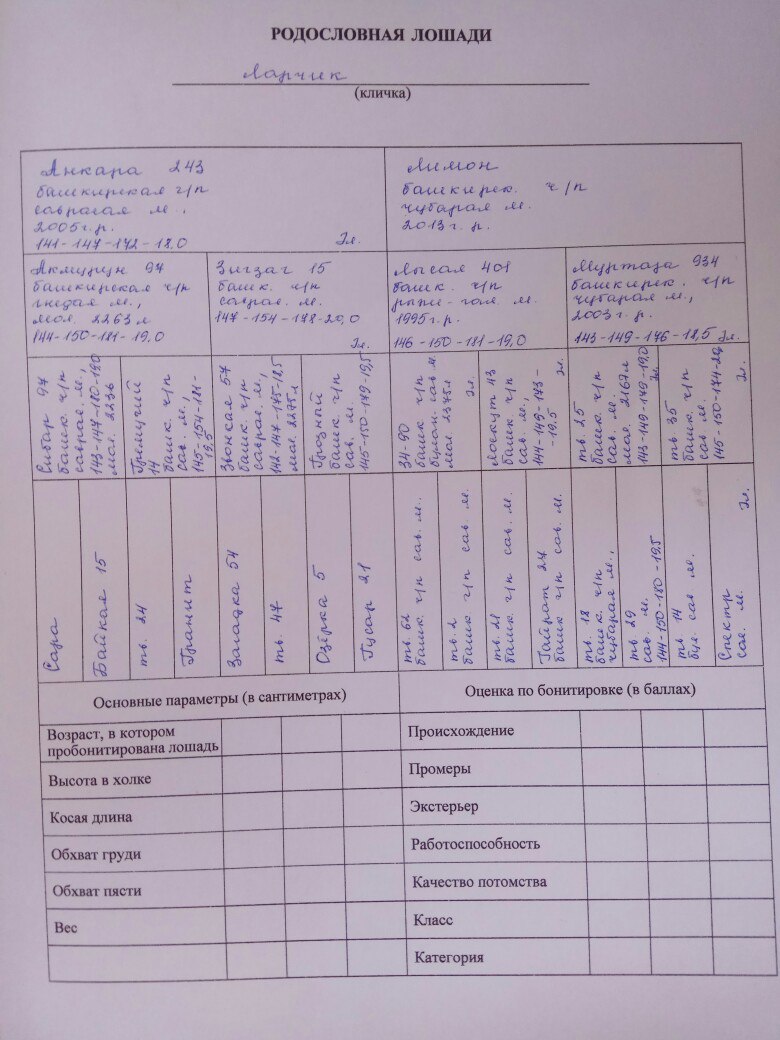 РОДОСЛОВНАЯ ЛОШАДИ
Ларчик
(кличка)
Анкара 243
башкирская ч/п
саврасая м.
2005 г.р.
141-147-172-18,0 Эл.
Лимон
башкирск. ч/п
чубарая м.
2013 г.р.
башкирская ч/п
гнедая м.,
мол. 2263 л
144-150-181-19,0
Зигзаг 15
башк. ч/п
саврас. м.
147-154-178-20,0
Эл.
Лысая 401
башк. ч/п
1995 г.р.
146-150-181-19,0
Муртаза 934
башкирск. ч/п
чубарая м.,
2003 г.р.
143-149-176-18,5 Эл.
Сибар 97
башк. ч/п
саврас. м.,
143-147-180-190
мол. 2236
Гремучий
14
башк ч/п
сав м.,
145-154-181-
19,5
Звонкая 57
башк. ч/п
саврас. м.,
142-147-175-18,5
мол. 2275 л
Грозный
башк. ч/п
сав. м.
145-150-179-19,5
Эл.
34-90
башк ч/п
булан. сав м.
мол 2375 л
Лоскут 43
башк ч/п
сав м.,
144-149-173-
19,5 Эл.
тв. 25
башк. ч/п
сав. м.
мол. 2167 л
143-149-179-19,0
Эл.
тв 35
башк. ч/п
сав м.
145-150-174-20
Эл.
Сара
Байкал 15
тв. 24
Гранит
Загадка 54
тв. 47
Озёрка 5
Гусар 21
тв. 62
башк. ч/п сав. м.
тв. 2
башк ч/п сав м
тв. 21
башк. ч/п сав. м.
Гайрат 24
башк ч/п сав. м.
тв. 18
башк. ч/п
чубарая м.,
тв 29
сав. м.
144-150-180-19,5
тв. 14
бул сав м.
Спектр
сав. м. Эл.
Основные параметры (в сантиметрах)
Оценка по бонитировке (в баллах)
Возраст, в котором
пробонитирована лошадь
Происхождение
Высота в холке
Промеры
Косая длина
Экстерьер
Обхват груди
Работоспособность
Обхват пясти
Качество потомства
Вес
Класс
Категория